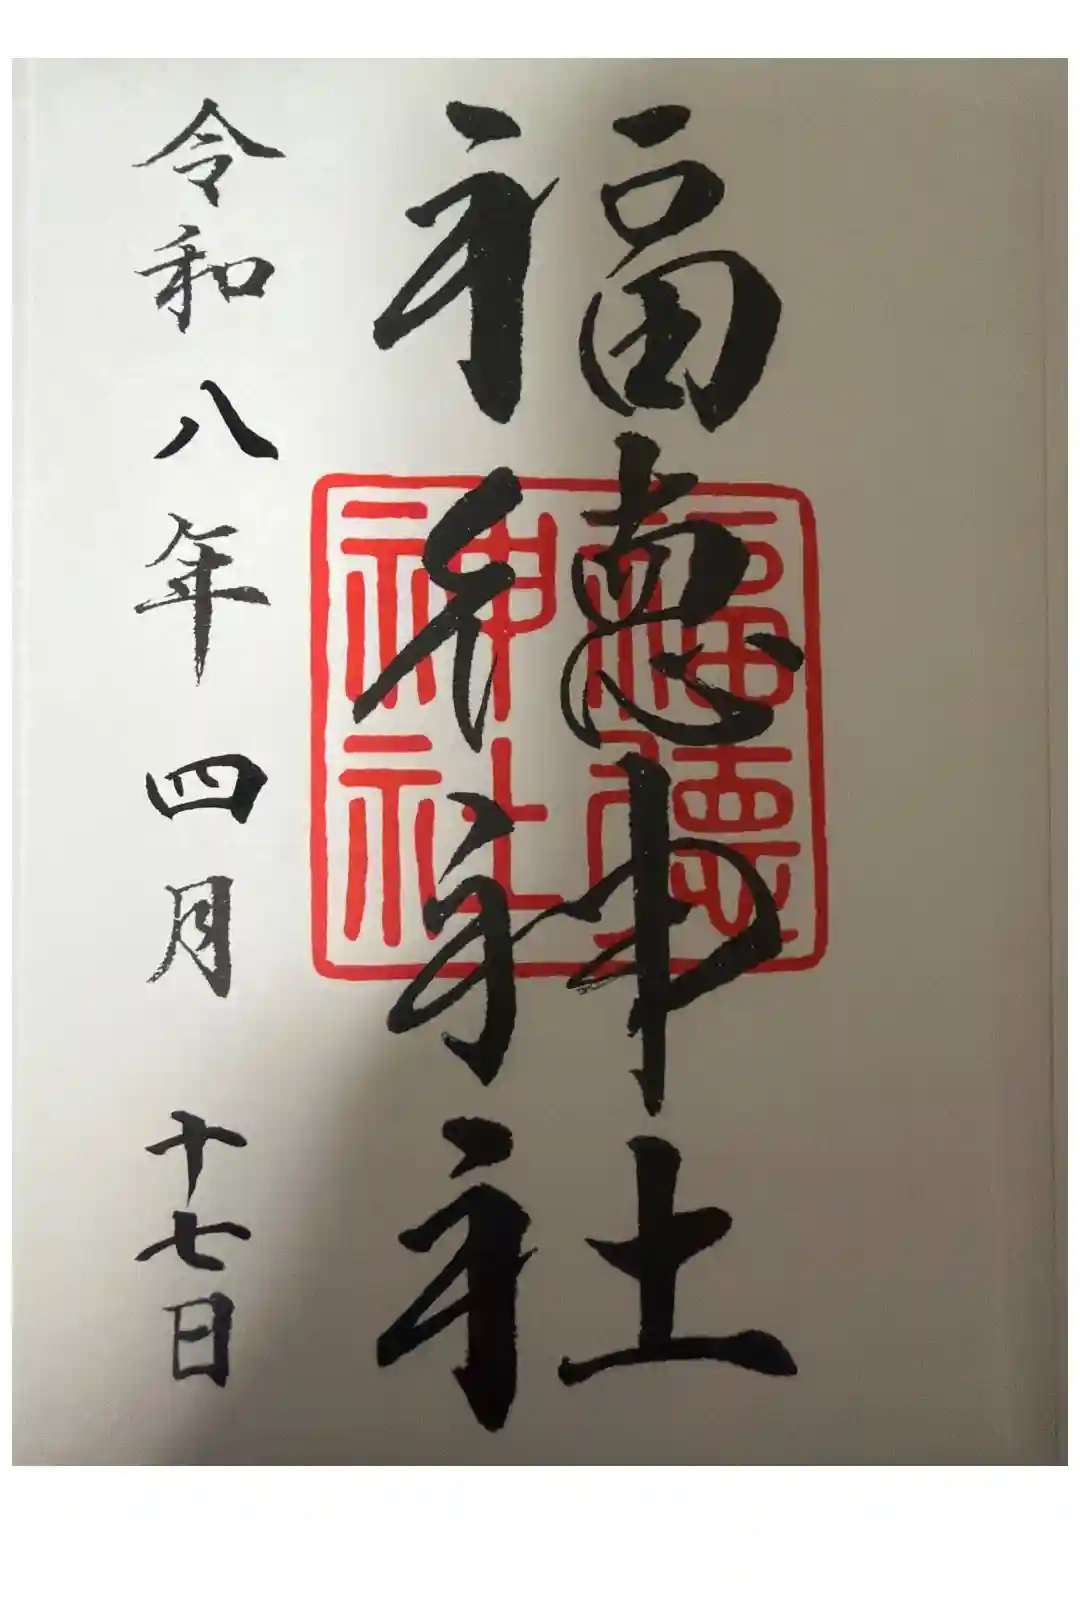 福徳神社
福德神社
令和八年四月十七日